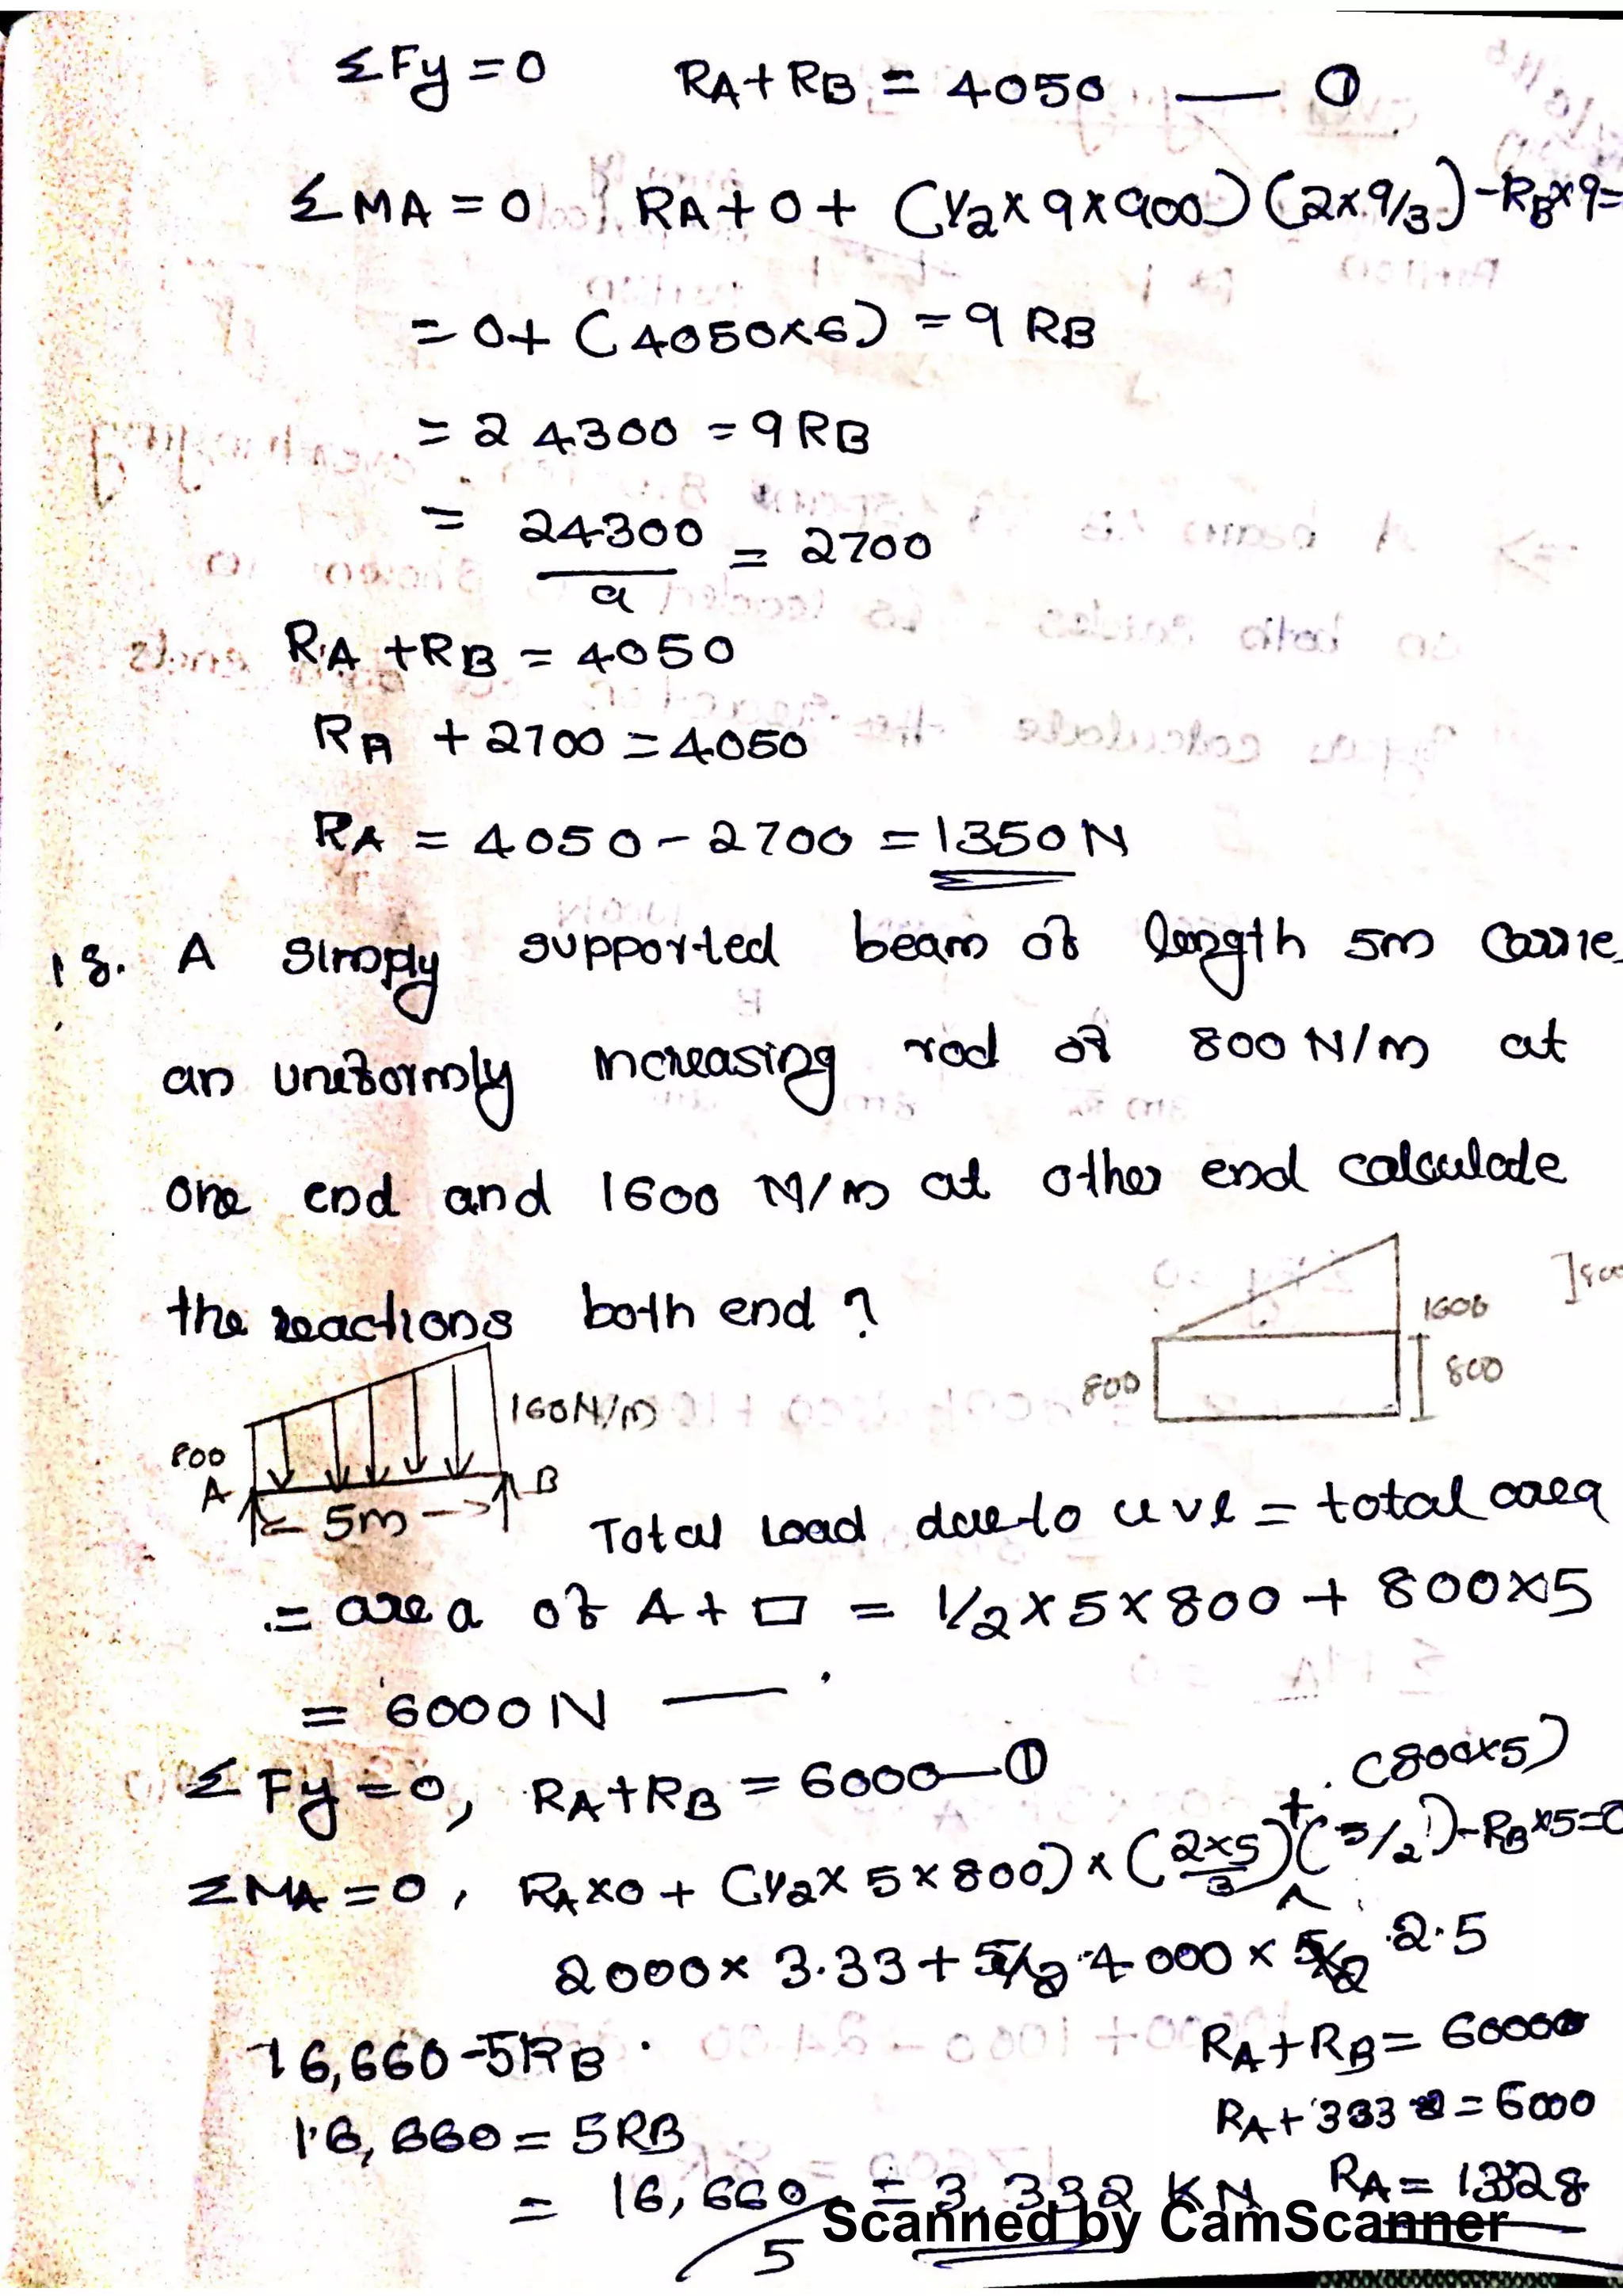 ΣFy = 0 RA + RB = 4050 — ①
ΣMA = 0 RA + 0 + (1/2 × 9 × 900) (2 × 9/3) - RB × 9 =
= 0 + (4050 × 6) = 9 RB
= 24300 = 9 RB
= 24300/9 = 2700
RA + RB = 4050
RA + 2700 = 4050
RA = 4050 - 2700 = 1350 N
18. A simply supported beam of length 5m carrie
an uniformly increasing rod of 800 N/m at
one end and 1600 N/m at other end calculate
the reactions both end ?
1600
800
800
800
160N/m
A
B
5m
Total Load due to uvl = total area
= area of Δ + □ = 1/2 × 5 × 800 + 800 × 5
= 6000 N —
ΣFy = 0, RA + RB = 6000 — ①
ΣMA = 0, RA × 0 + (1/2 × 5 × 800) × (2×5/3) + (800×5) (5/2) - RB × 5 = 0
2000 × 3.33 + 4000 × 2.5
16,660 - 5RB
16,660 = 5RB
= 16,660/5 = 3.332 KN
RA + RB = 6000
RA + 3332 = 6000
RA = 1328
Scanned by CamScanner